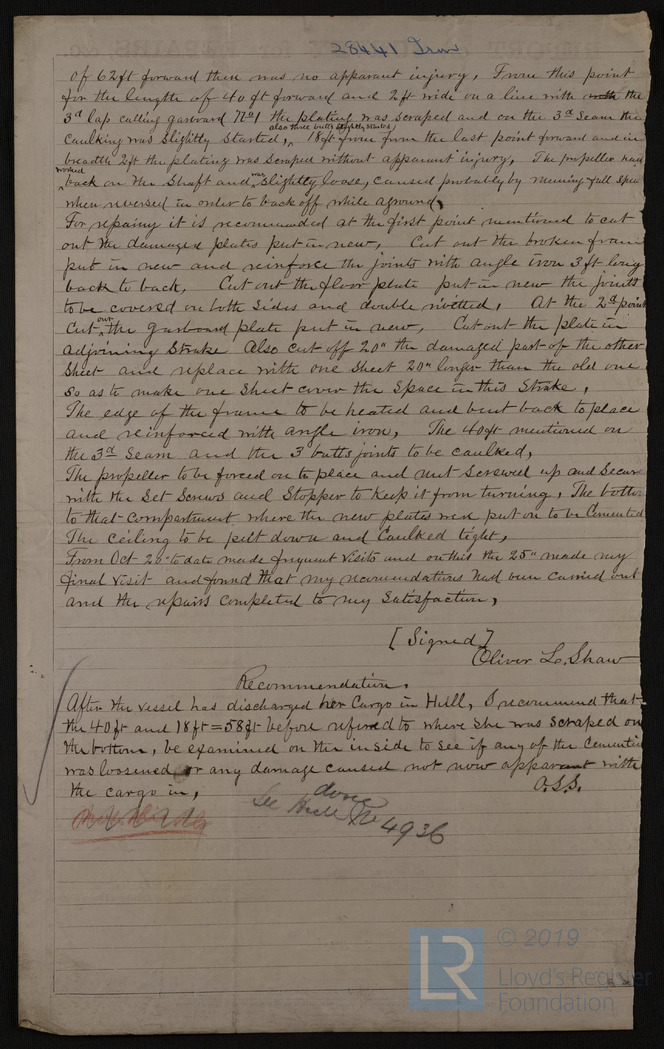 28441 Iron
of 62ft forward then was no apparant injury. From this point
for the length of 40ft forward and 2ft wide on a line with the
3d lap calling garboard No1 the plating was scraped and on the 3d Seam the
also three butts slightly started
caulking was slightly started, 18ft from the last point forward and in
breadth 2ft the plating was scraped without apparant injury, The propeller had
worked
back on the Shaft and was slightly loose, caused probably by running full Speed
when reversed in order to back off while aground,
For repairing it is recommended at the first point mentioned to cut
out the damaged plates put in new, Cut out the broken frame
put in new and reinforce the joints with angle iron 3ft long
back to back, Cut out the floor plate put in new the joints
to be covered on both Sides and double rivetted, At the 2d point
Cut out the garboard plate put in new, Cut out the plate in
adjoining Strake Also cut off 20" the damaged part of the other
Sheet and replace with one Sheet 20" longer than the old one
So as to make one Sheet cover the Space in this Strake,
The edge of the frame to be heated and bent back to place
and reinforced with angle iron, The 40ft mentioned on
the 3d Seam and the 3 butts joints to be caulked,
The propeller to be forced on to place and nut Screwed up and Secure
with the Set Screws and Stopper to keep it from turning, The bottom
to that compartment where the new plates were put on to be Cemented
The ceiling to be put down and Caulked tight,
From Oct 20th to date made frequent visits and on this the 25th made my
final visit and found that my recommendations had been carried out
and the repairs completed to my Satisfaction,
[Signed]
Oliver L. Shaw
Recommendation,
After the vessel has discharged her Cargo in Hull, I recommend that
the 40ft and 18ft = 58ft before refered to where she was Scraped on
the bottom, be examined on the inside to see if any of the Cementing
was loosened or any damage caused not now apparant with
the cargo in, O.L.S.
done
See Hull No 4936
LR
© 2019
Lloyd's Register
Foundation